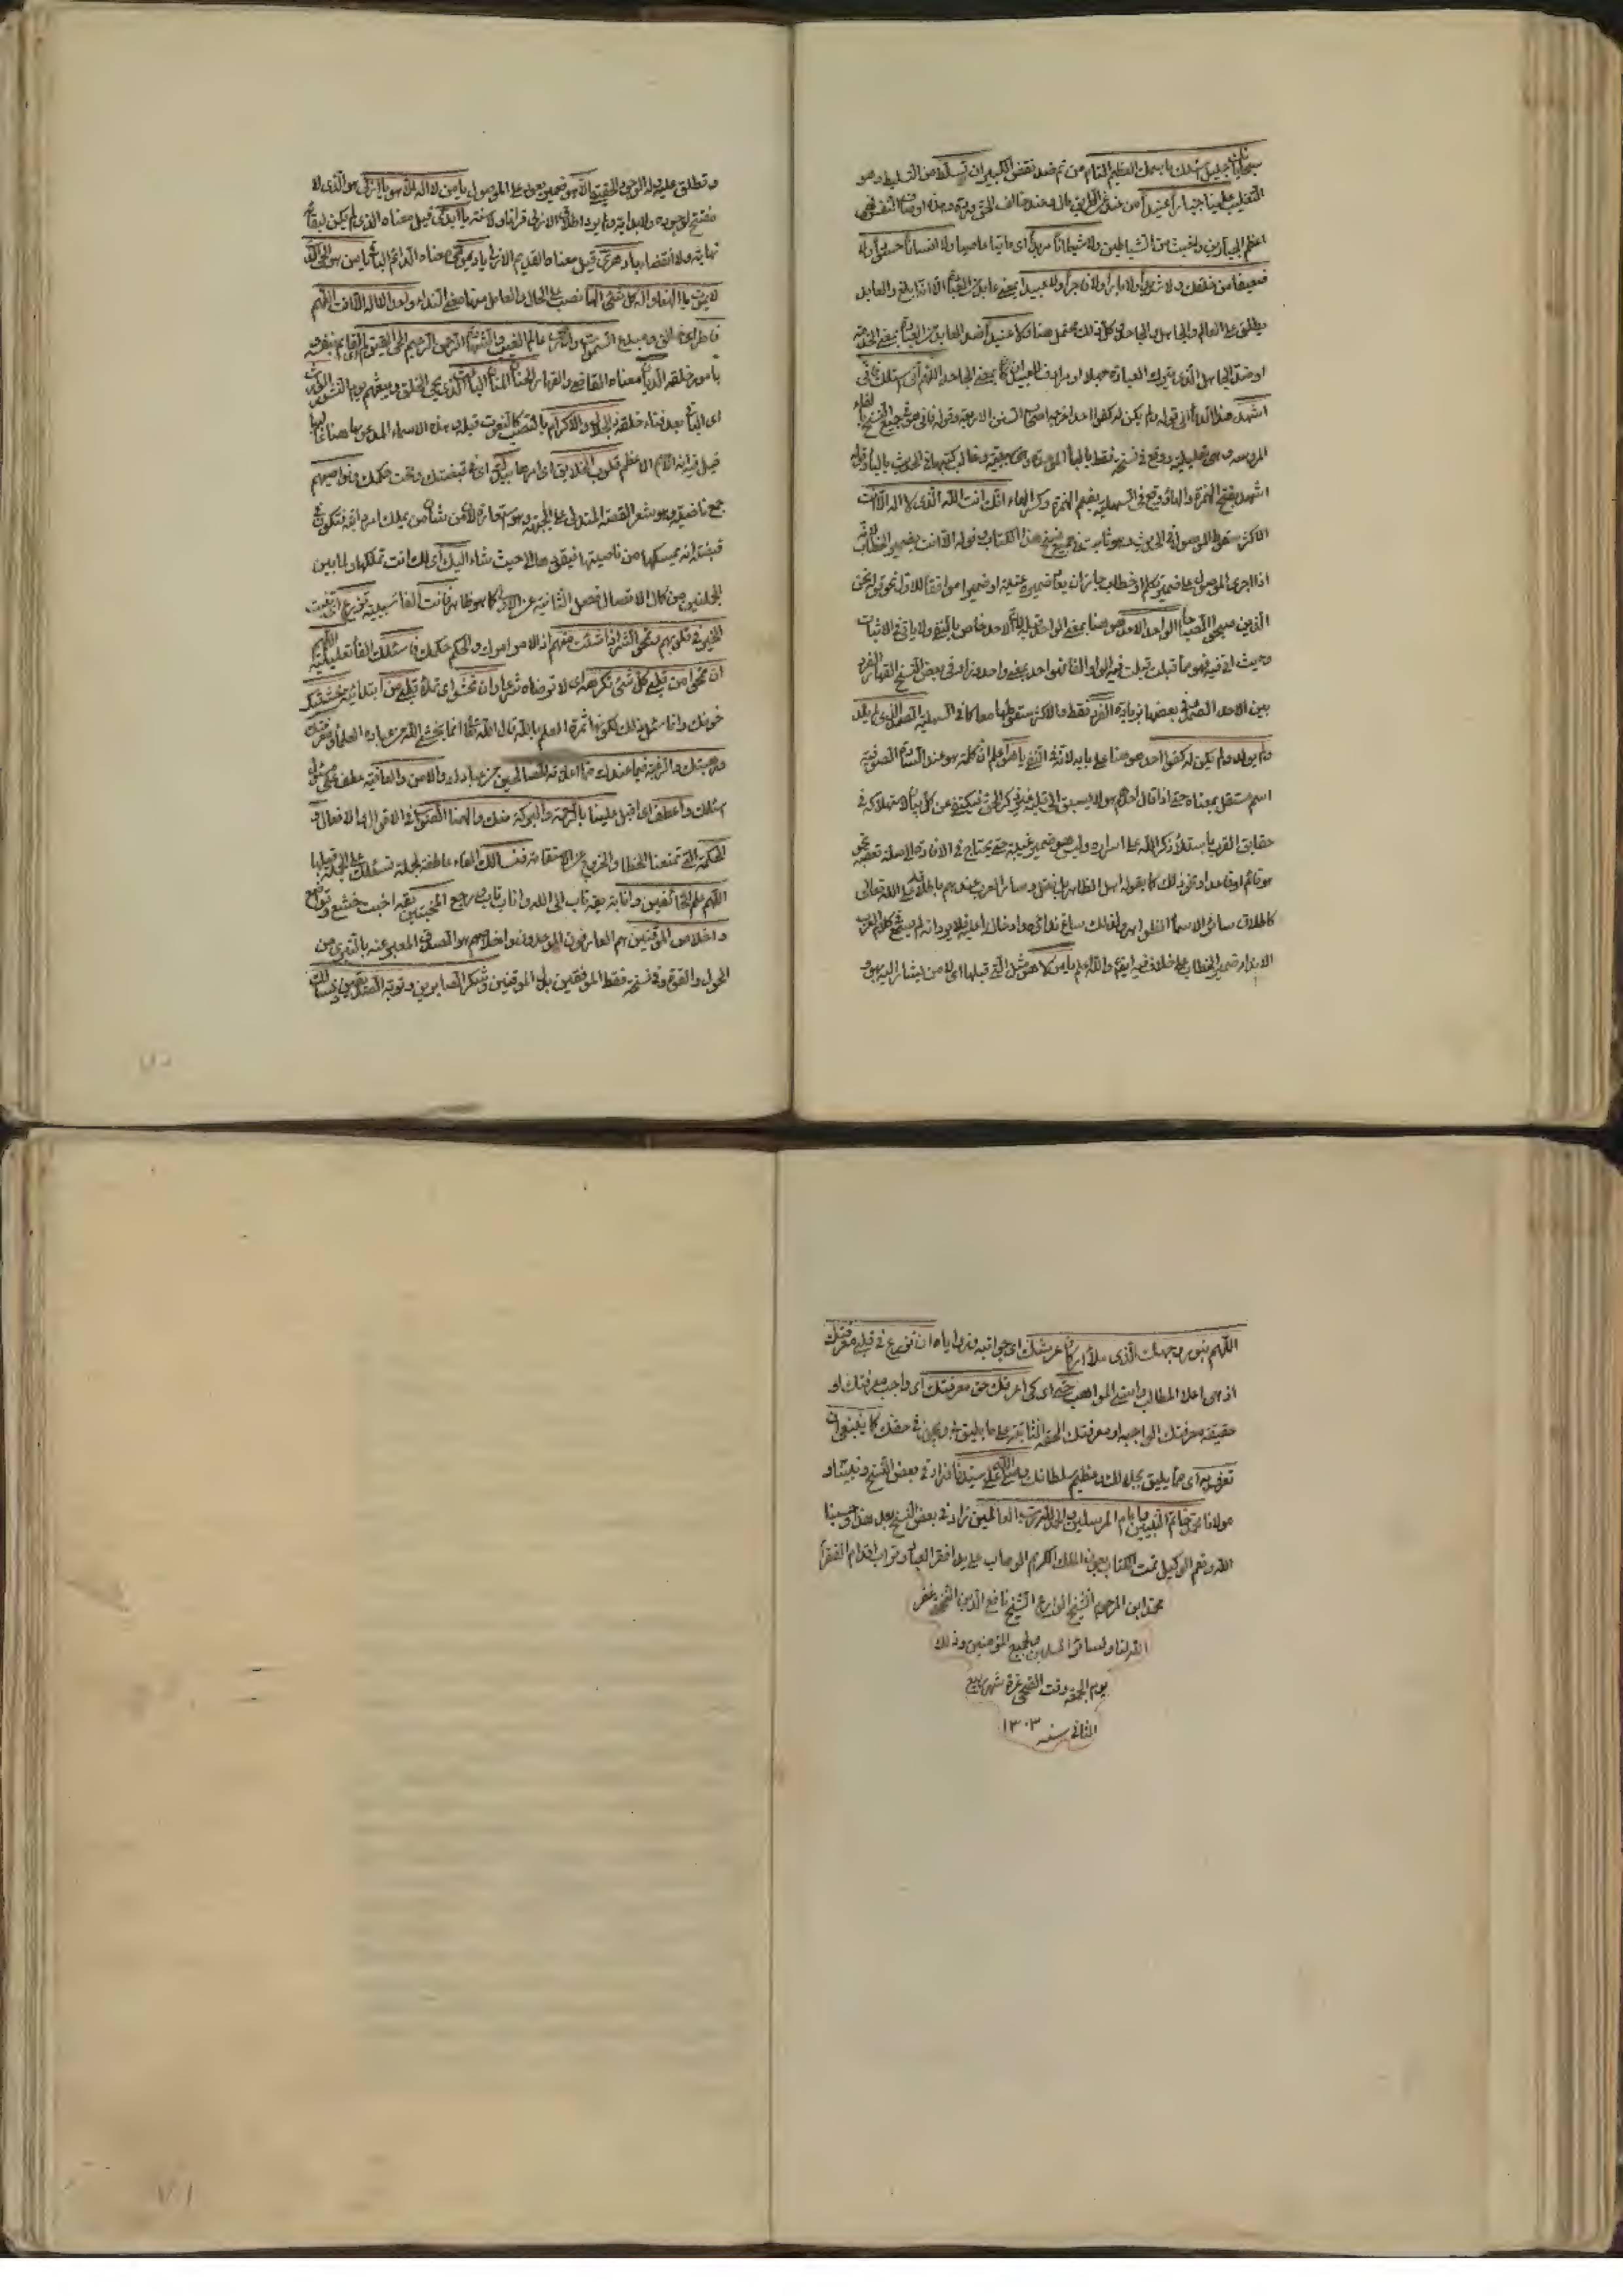 سبحانك يا جليل نسئلك باسمك العظيم التام من تم ضد نقص الكبير ان تسلط من التسليط وهو
التغليب علينا جبارا عنيدا من عند عن الطريق مال وعند خالف الحق ورده وهذه اوصاف النفس فهي
اعظم الجبارين واخبث من الشياطين ولا شيطانا مريدا اى عاتيا عاصيا ولا انسانا حسودا ولا
ضعيفا من خلقك ولا شديدا ولا بارا ولا فاجرا ولا عبيدا بمعنى عابد
يطلق على العالم والجاهل والجاحد وكل ذلك محتمل هنا ولا عنيدا ضد العابد من العبادة بمعنى الخدمة
او ضد الجاهل الذى يترك العبادة جهلا او يرادف العنيد ان كان بمعنى الجاحد اللهم انى اسئلك فانى
اشهد هذا الدعاء الى قوله ولم يكن له كفوا احد اخرجه اصحاب السنن الاربعة وقوله فانى فى جميع النسخ بالفاء
وهى تعليلية ووقع فى نسخة فقط بالباء الموحدة
اشهد بفتح الهمزة والهاء ووقع فى السهلية بضم الهمزة وكسر الهاء انك انت الله الذى لا اله الا انت
الاكثر سقوط الموصول فى الحديث وهو ثابت فى جميع نسخ هذا الكتاب وقوله الا انت بضمير الخطاب لانه
اذا جرى الموصول على ضمير تكلم او خطاب جاز ان يعاد ضميره غيبة او ضميرا موافقا للاول نحو قوله نحن
الذين صبحوا الصباحا الواحد الاحد هو هنا بمعنى الواحد قيل الاحد خاص بالنفى ولا ياتى فى الاثبات
وحيث اتى فيه فهو مما قبلت فيه الواو الفا فهو احد بمعنى واحد وزاد فى بعض النسخ القهار الفرد
بين الاحد الصمد وفى بعضها بزيادة الفرد فقط والاكثر سقوطها معا كما فى السهلية الصمد الذى لم يلد
ولم يولد ولم يكن له كفوا احد هو هنا على بابه لانه فى النفى يا هو اعلم ان كلمة هو عند السادة الصوفية
اسم مستقل بمعناه حتى اذا قال احدهم هو لا يسبق الى قلبه غير ذكر الحق فيكتفى عن كل بيان لاستهلاكه فى
حقايق القرب باستيلاء ذكر الله على اسراره وليس هو ضمير غيبة حتى يحتاج فى الافادة الى صلة تعقبه نحو
هو قائم او قاعد او نحو ذلك كما يقوله اهل الظاهر بل نقل وسائر العرب عندهم باطلاقه على الله تعالى
كاطلاق سائر الاسماء الظواهر ولذلك ساغ نداؤه وادخال ال عليه فلا يورد انه لم يسمع فى كلام العرب
الا نداء ضمير الخطاب على خلاف فيه ايضا والله اعلم يا من لا هو مثل التى قبلها اى لا من يشار اليه بهو
وتطلق عليه الوجود الحقيقى الا هو ضمير يعود على الموصول يا من لا اله الا هو يا ازلى هو الذى لا
مفتتح لوجوده ولا بداية ولم يرد اطلاق الازلى قرانا ولا سنة يا ابدى قيل معناه الذى لم يكن لبقائه
نهاية ولا انقضاء يا دهرى قيل معناه القديم الازلى يا ديمومى معناه الدائم الباقى يا من هو الحى الذى
لا يموت يا الهنا واله كل شئ الها نصب على الحال والعامل فيها معنى النداء واحدا لا اله الا انت اللهم
فاطر اى خالق ومبدع السموات والارض عالم الغيب والشهادة الرحمن الرحيم الحى القيوم القايم بنفسه
بامور خلقه الديان معناه القاضى والقهار الحنان المنان الباعث الذى يحيى الخلق ويبعثهم يوم النشور الوارث
اى الباقى بعد فناء خلقه ذا الجلال والاكرام بالنصب كالنعوت قبله وهذه الاسماء المدعو بها هنا
قيل فيه انه الاسم الاعظم قلوب الخلايق اى امرها بيدك اى فى قبضتك وتحت حكمك ونواصيهم
جمع ناصية وهو شعر القصة المتدلى على الجبهة وهو استعارة لان من شان من يملك امرا بقبضته
قبضته انه يمسكها من ناصيتها فيقلبها الى حيث شاء اليك اى لك انت تملكها ولما بين
الجملتين من كمال الاتصال فصل الثانية عن الاولى كما هو ظاهر فانت الفا سببية تزرع اى تنبت
الخير فى قلوبهم وتمحو الشر اذا شئت منهم اذ الامر امرك والحكم حكمك فاسئلك الفاء تعليلية اللهم
ان تمحو من قلبى كل شئ تكرهه اى لا ترضاه شرعا وان تحشو اى تملا قلبى من ابتدائية خشيتك
خوفك وانما سئل ذلك لكونها ثمرة العلم بالله قال الله تعالى انما يخشى الله من عباده العلماء ومعرفتك
ورهبتك والرغبة فيما عندك مما اعددته للصالحين من عبادك والامن والعافية عطف على
اسئلك واعطف اى اقبل علينا بالرحمة والبركة منك والهمنا الصواب فى الاقوال والافعال و
الحكمة التى تمنعنا الخطا والخروج عن الاستقامة فنسالك الفاء عاطفة لجملة نسئلك على الجملة قبلها
اللهم علم الخائفين وانابة يقه تاب الى الله واناب تاب ورجع المخبتين يقه اخبت خشع وتواضع
واخلاص الموقنين هم العارفون الموحدون واخلاصهم هو الصدق المعبر عنه بالتبرى من
الحول والقوة وفى نسخة فقط الموفقين بدل الموقنين وشكر الصابرين وتوبة الصديقين ونسالك
اللهم بنور وجهك الذى ملأ اركان عرشك اى جوانبه ان تزرع فى قلبى معرفتك
اذ هى اعلا المطالب واسنى المواهب حتى اى كى اعرفك حق معرفتك اى واجب معرفتك او
حقيقة معرفتك الواجبة او معرفتك الحقة الثابتة على ما يليق ويجوز فى حقك كما ينبغى ان
تعرف به اى مما يليق بجلالك وعظيم سلطانك وصلى الله على سيدنا زاد فى بعض النسخ ونبينا و
مولانا محمد خاتم النبيين وامام المرسلين والحمد لله رب العالمين زاد فى بعض النسخ بعد هذا وحسبنا
الله ونعم الوكيل تمت الكتاب بعون الملك الكريم الوهاب على يد افقر العباد وتراب اقدام الفقراء
محمد ابن المرحوم الشيخ الوارع الشيخ نافع الدين غفر
الله لنا ولسائر المسلمين ولجميع المؤمنين وذلك
يوم الجمعة وقت الضحى غرة شهر ربيع
الثانى سنه ١٣٠٣